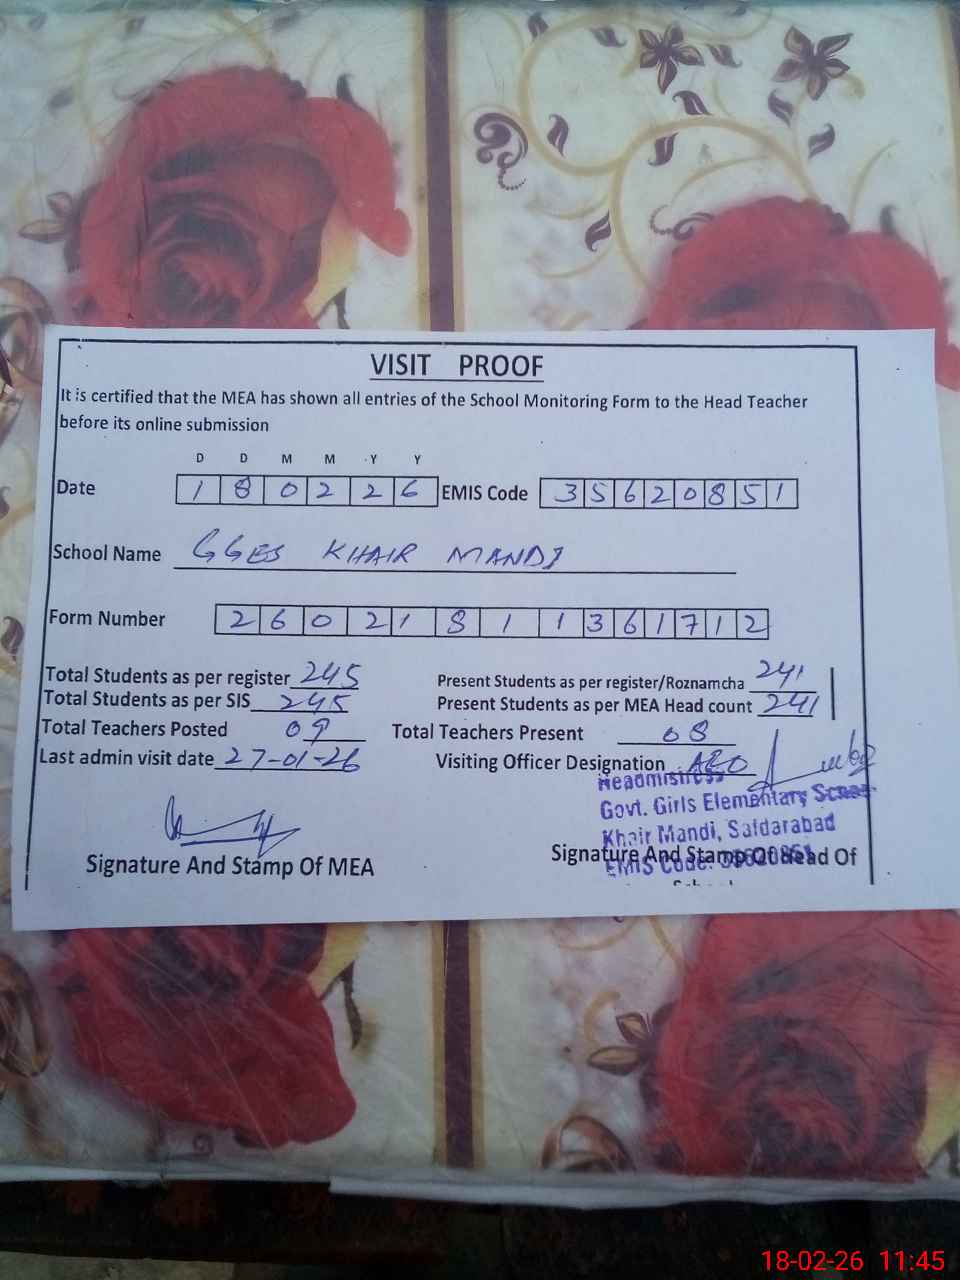 VISIT PROOF
It is certified that the MEA has shown all entries of the School Monitoring Form to the Head Teacher
before its online submission
D D M M Y Y
Date 1 8 0 2 2 6 EMIS Code 3 5 6 2 0 8 5 1
School Name GGES KHAIR MANDI
Form Number 2 6 0 2 1 8 1 1 3 6 1 7 1 2
Total Students as per register 245 Present Students as per register/Roznamcha 241
Total Students as per SIS 245 Present Students as per MEA Head count 241
Total Teachers Posted 09 Total Teachers Present 08
Last admin visit date 27-01-26 Visiting Officer Designation AEO
Headmistress
Govt. Girls Elementary
Khair Mandi, Safdarabad
EMIS Code: 35620851
Signature And Stamp Of MEA Signature And Stamp Of Head Of
18-02-26 11:45